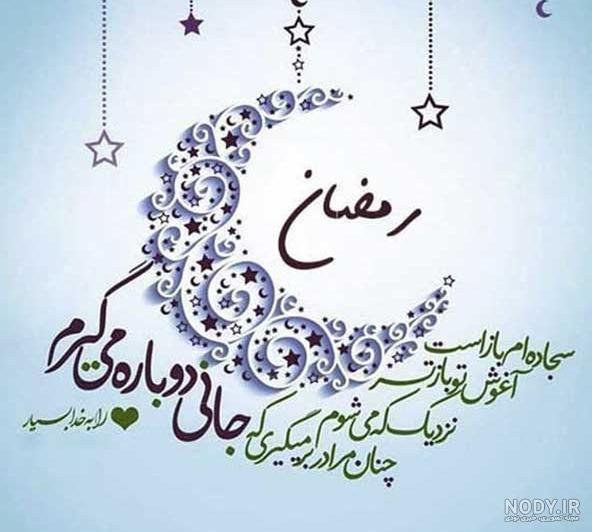 رمضان
سجاده ام باز است
آغوش تو بازتر
نزدیک که می شوم
چنان مرا در بر میگیری که
جانی دوباره می گیرم
را به خدا بسپار
NODY.IR
مجله تصویری، خبری نودی